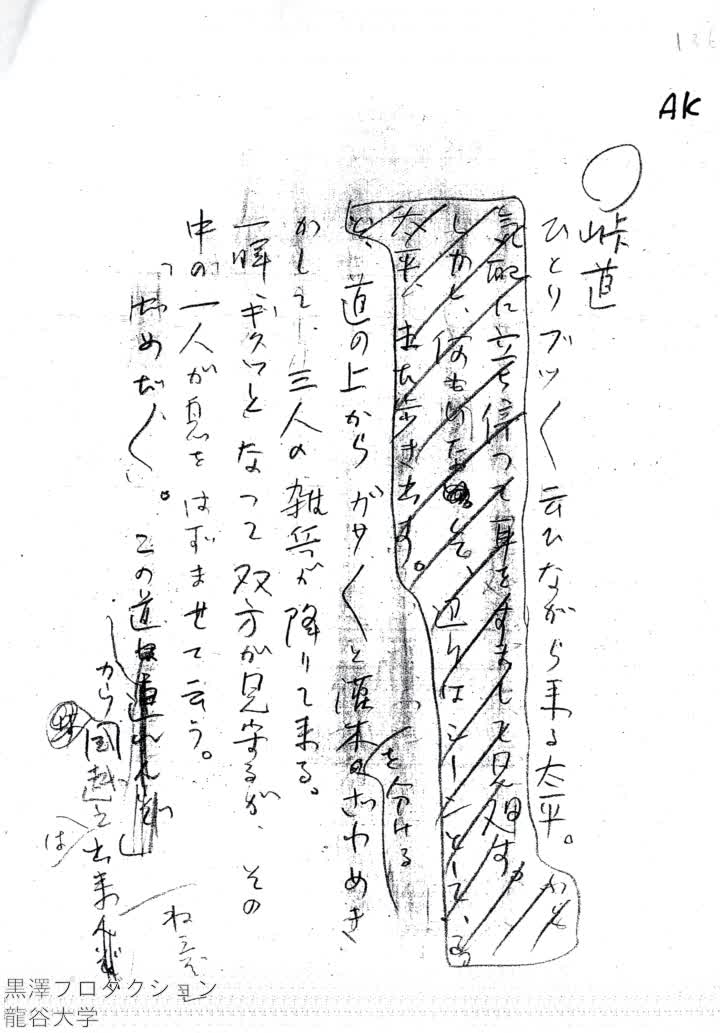 136
AK
○峠道
ひとりブツ〱云ひながら来る太平。がも
気配に立ち停って耳をすまして見廻す。
しかし、何もいない。辺りはシーンとしている
太平、また歩き出す。
と、道の上からガサ〱と灌木のざわめき
を分ける
がして、三人の雑兵が降りて来る。
一瞬ギクッとなって双方が見守るが、その
中の一人が息をはずませて云う。
「だめだ〱。この道は
から国越え出来ん
は
ねえぞ
黒澤プロダクション
龍谷大学